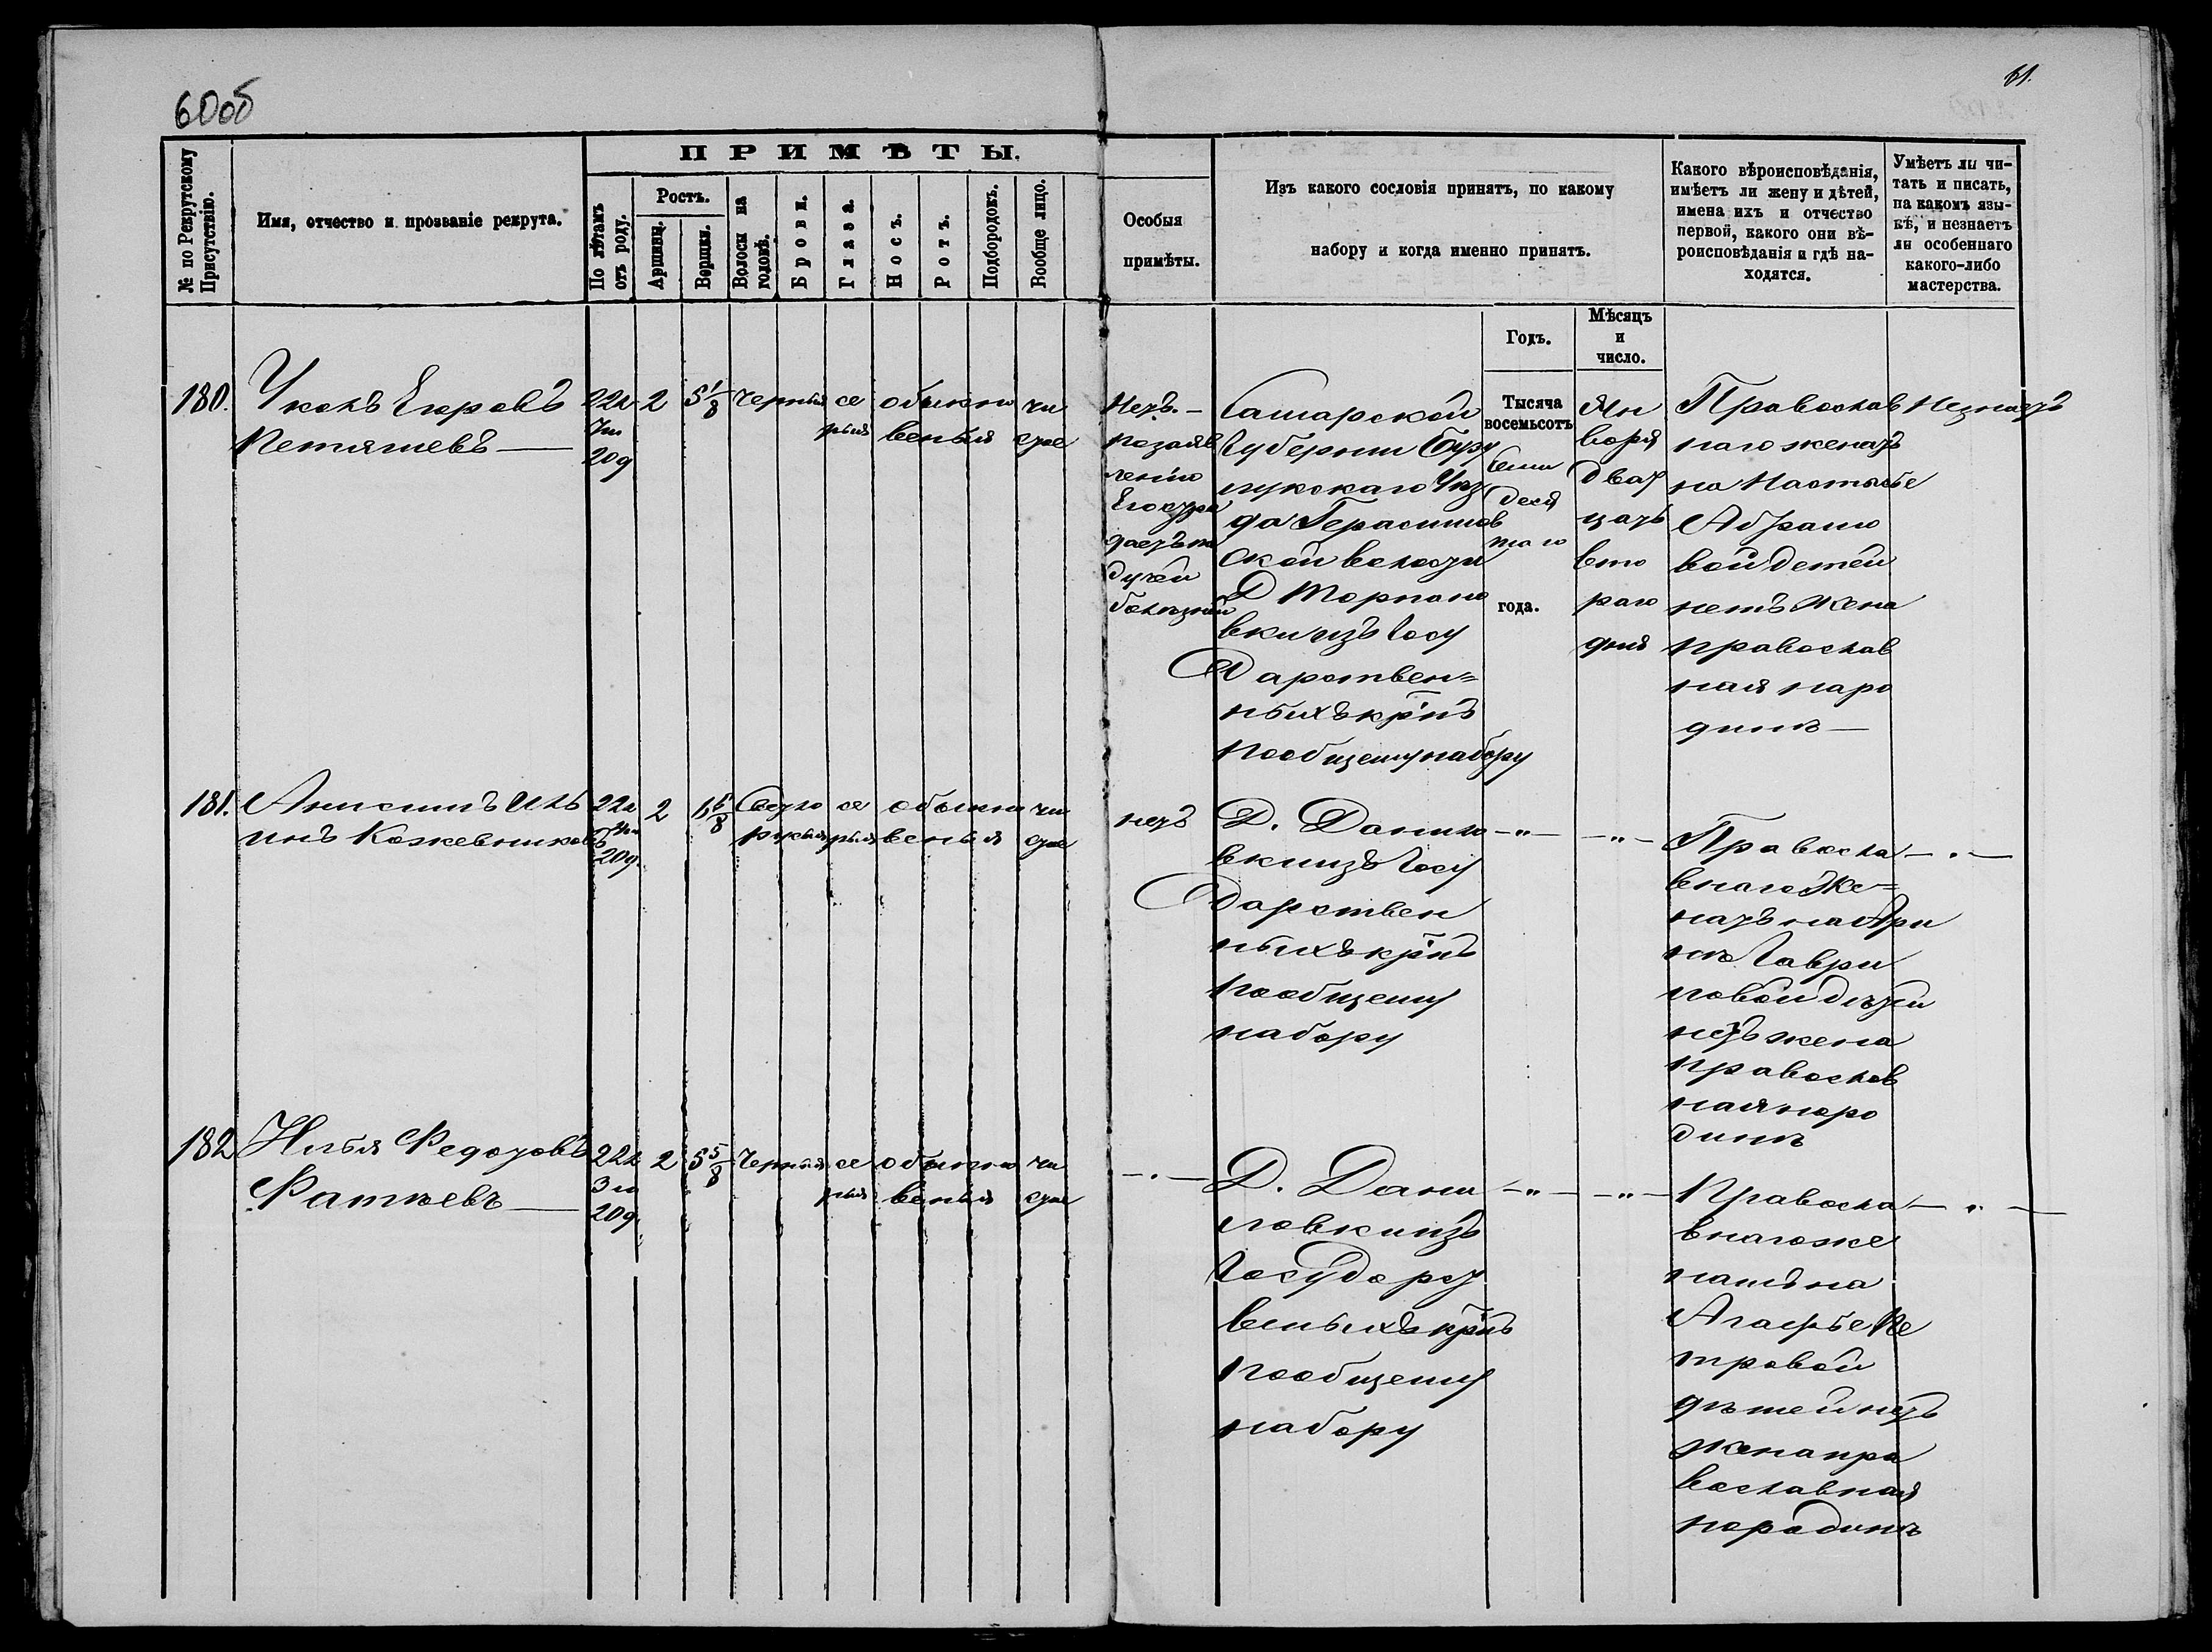 60об
61.
№ по Рекрутскому Присутствію.
Имя, отчество и прозваніе рекрута.
ПРИМѢТЫ.
По лѣтамъ отъ роду.
Ростъ.
Аршины.
Вершки.
Волосы на головѣ.
Брови.
Глаза.
Носъ.
Ротъ.
Подбородокъ.
Вообще лицо.
Особыя
примѣты.
Изъ какого сословія принятъ, по какому
набору и когда именно принятъ.
Годъ.
Мѣсяцъ
и
число.
Какого вѣроисповѣданія,
имѣетъ ли жену и дѣтей,
имена ихъ и отчество
первой, какого они вѣ-
роисповѣданія и гдѣ на-
ходятся.
Умѣетъ ли чи-
тать и писать,
на какомъ язы-
кѣ, и незнаетъ
ли особеннаго
какого-либо
мастерства.
180.
Егоровъ
Петяшевъ —
22л
7м
20д
2
5 1/8
Черныя
се
рыя
обыкно
венныя
чи
стое
Нетъ. —
позаяв
лению
Его стра
даетъ па
дучей
Самарской
Губернии Бузу
лукскаго Уез
да Герасимов
ской волости
Д
вки изъ Госу
Дарствен=
ныхъ крнъ
по общему набору
Тысяча
восемьсотъ
семи
деся
таго
года.
Ян
варя
двад
цать
вто
раго
дня
Православ
наго женатъ
на Настасье
Абрамо
вой детей
нетъ Жена
православ
ная наро
динѣ —
Незнаетъ
181.
Анисимъ Иль
инъ Кожевниковъ
22л
20д.
2
Светло
русыя
се
рыя
обыкно
венныя
чи
стое
нетъ
Д. Данило
вки изъ Госу
Дарствен
ныхъ крнъ
по общему
набору
—"—
—"—
Правосла
внаго Же=
натъ на Ари
нѣ Гаври
ловой дѣтей
нетъ жена
православ
ная наро
динѣ
— . —
182
Илья Федоровъ
Фатѣевъ —
22л
3м
20д.
2
5 5/8
Черныя
се
рыя
обыкно
венныя
чи
стое
— . —
Д. Дани
ловки изъ
Государст
венныхъ крнъ
по общему
набору
—"—
—"—
Правосла
внаго же
натъ на
Агафье Пе
тровой
дѣтей нетъ
жена пра
вославная
народинѣ
— . —